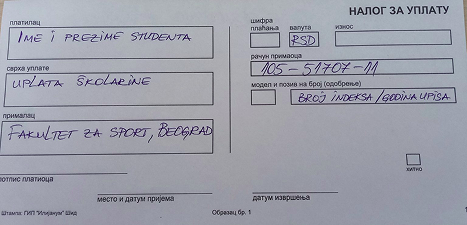 НАЛОГ ЗА УПЛАТУ
платилац
IME I PREZIME STUDENTA
сврха уплате
UPLATA ŠKOLARINE
прималац
FAKULTET ZA SPORT, BEOGRAD
шифра плаћања
валута
RSD
износ
рачун примаоца
105-51707-11
модел и позив на број (одобрење)
BROJ INDEKSA/GODINA UPISA
хитно
потпис платиоца
место и датум пријема
датум извршења
Штампа: ГИП "Илијанум" Шид
Образац бр. 1